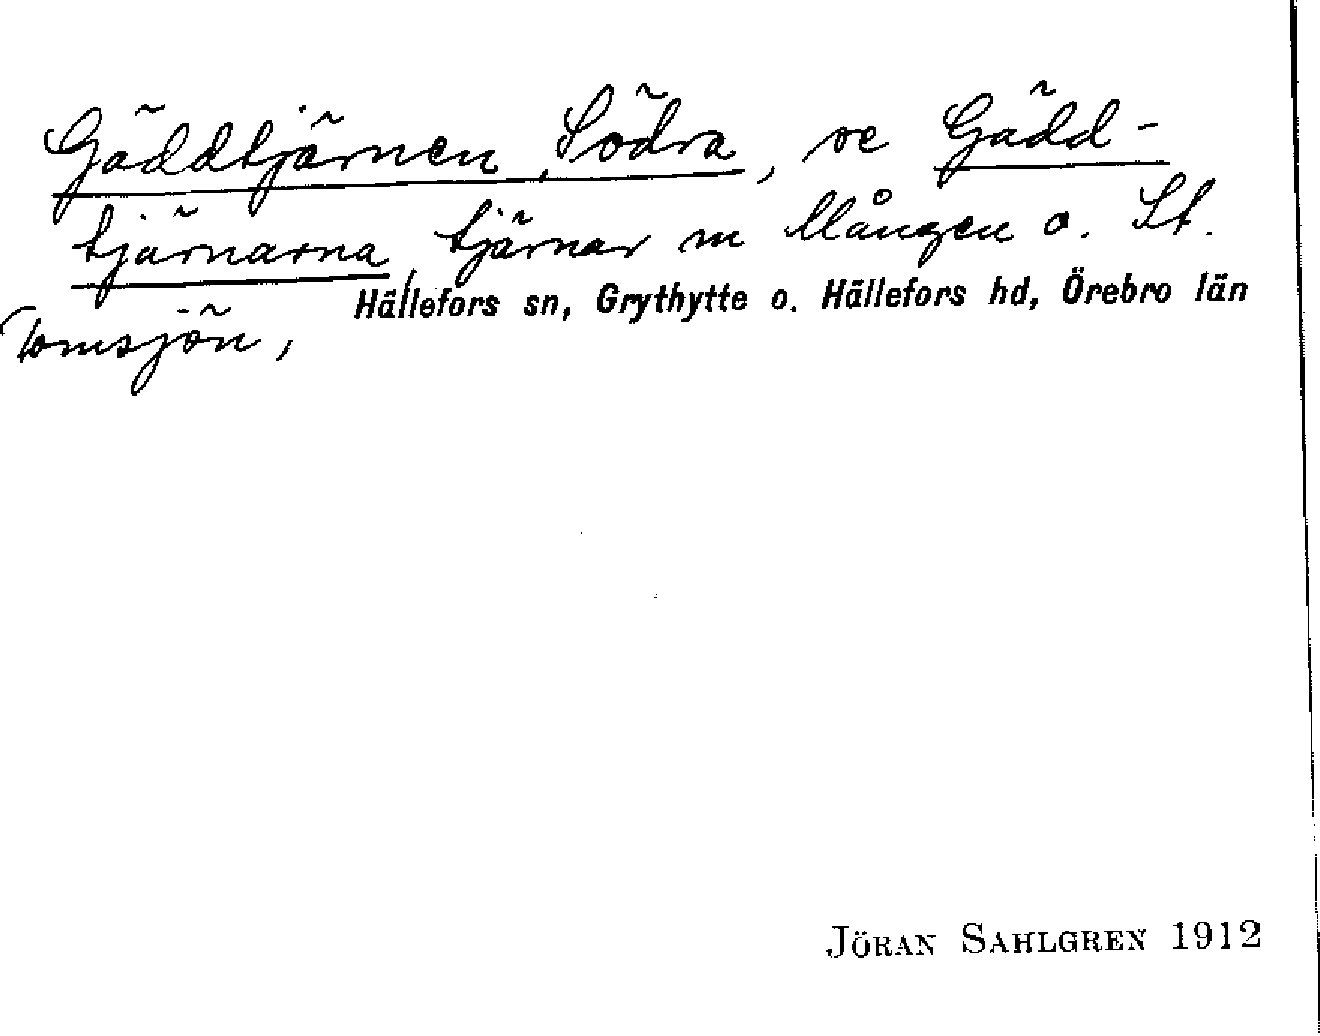 Gäddtjärnen, Södra, se Gädd-
tjärnarna, tjärnar m Mången o. St.
Tomsjön,
Hällefors sn, Grythytte o. Hällefors hd, Örebro län
JÖRAN SAHLGREN 1912